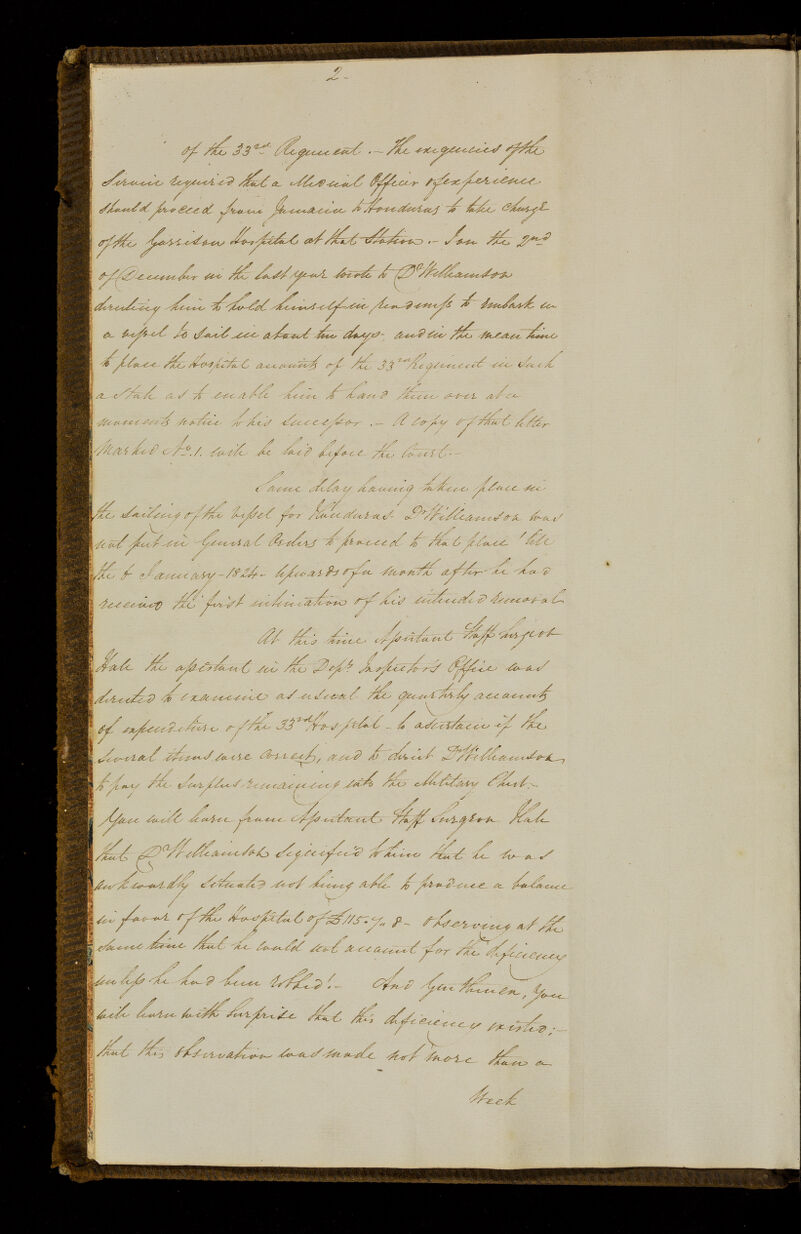 2-
of the 33rd Regiment.- The exigencies of the
Service required that a Medical Officer of experience
should proceed from Jamaica to Honduras to take charge
of the Garrison Hospital at that Station - I on the 2nd
of December in the last year wrote to Dr Williamson
directing him to hold himself in readiness to embark in
a vessel to sail in about ten days. and in the mean time
to place the Hospital accounts of the 33rd Regiment in such
a State as to enable him to hand them over at a
moments notice to his successor.- A copy of that letter
Marked No. 1. will be laid before the Court.-
Some delay having taken place in
the sailing of the vessel for Honduras. Dr Williamson was
not put in General Orders to proceed to that place 'till
the 6 January - 1824 - upwards of a month after he had
received the first intimation of his intended removal
At this time Assistant Staff Surgeon
Hale the assistant in the Depy Inspector's Office was
directed to examine as usual the quarterly accounts
of expenditure of the 33rd Hospital - to ascertain if the
several items were correct, and to direct Dr Williamson
to pay the surplus remaining into the Military Chest.-
You will learn from Assistant Staff Surgeon Hale
that Dr Williamson signified to him that he was
awkwardly situated not being able to produce a balance
in favor of the Hospital of £115.7.8 - observing at the
same time that he could not account for the deficiency
unless he had been robbed!- And Gentlemen, You
will learn with surprise that this deficiency existed;-
that this observation was made not more than a
Week